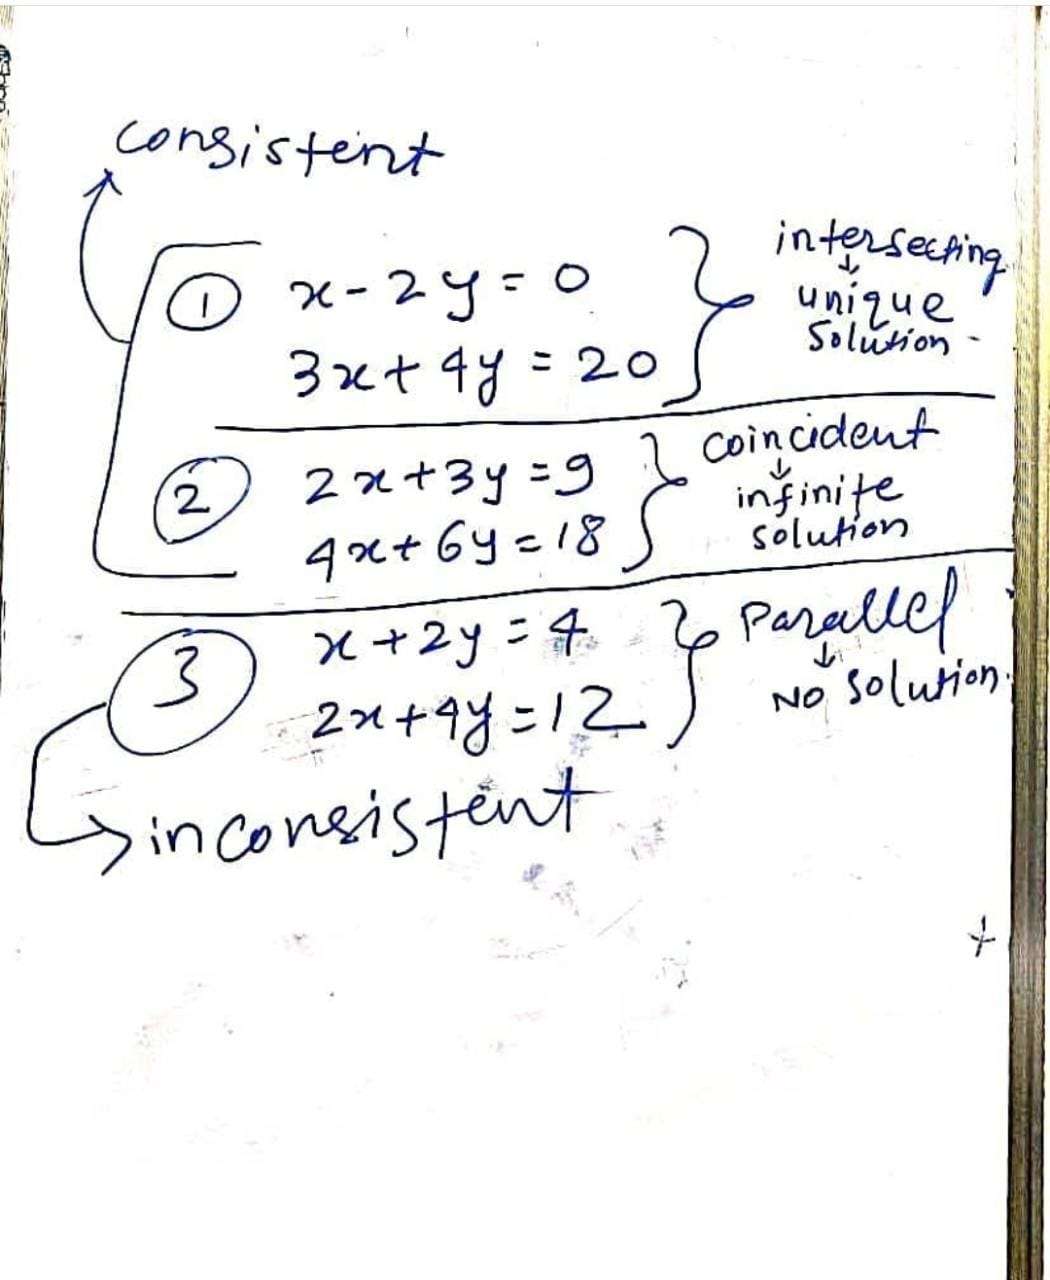 consistent
① x - 2y = 0
3x + 4y = 20
intersecting
↓
unique
solution -
② 2x + 3y = 9
4x + 6y = 18
coincident
↓
infinite
solution
③ x + 2y = 4
2x + 4y = 12
Parallel
↓
NO solution.
inconsistent